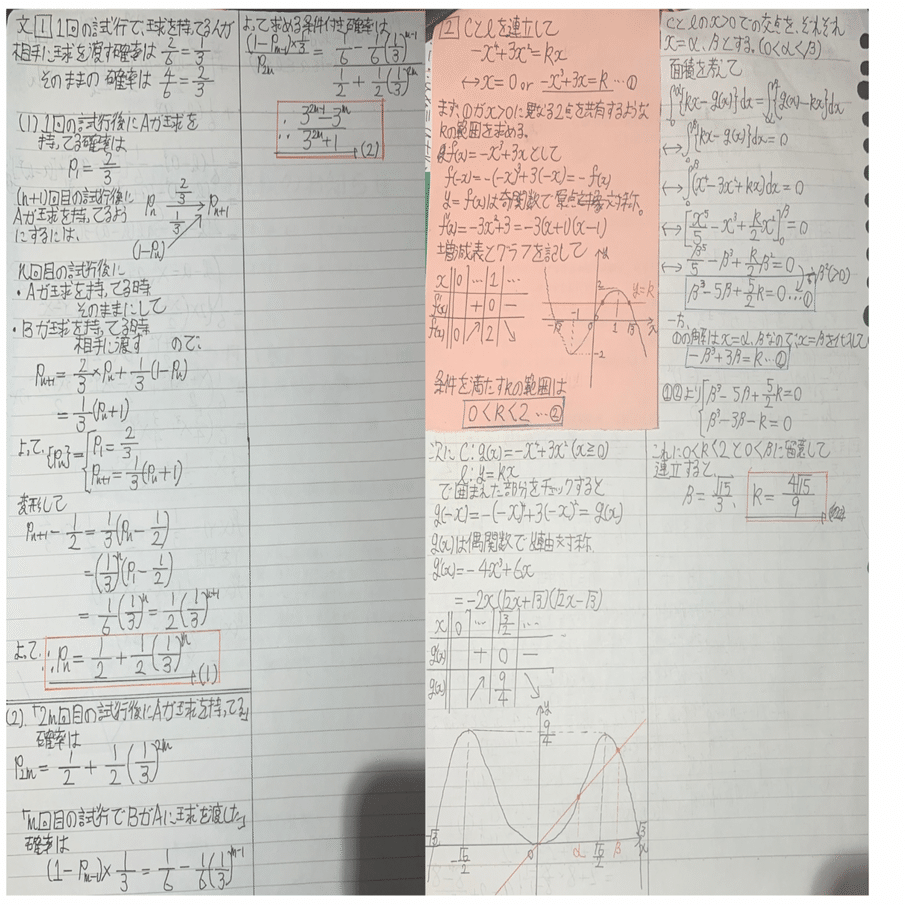 文1 1回の試行で、球を持ってる人が
相手に球を渡す確率は 2/6 = 1/3
そのままの確率は 4/6 = 2/3
(1) 1回の試行後にAが球を
持ってる確率は
P₁ = 2/3
(n+1)回目の試行後に
Aが球を持ってるよう
にするには、
Pn 2/3 → Pn+1
1/3
(1-Pn)
n回目の試行後に
・Aが球を持ってる時
そのままにして
・Bが球を持ってる時
相手に渡す ので、
Pn+1 = 2/3 × Pn + 1/3 (1-Pn)
= 1/3 (Pn+1)
よって、{Pn} = { P₁ = 2/3
Pn+1 = 1/3 (Pn+1)
変形して
Pn+1 - 1/2 = 1/3 (Pn - 1/2)
= (1/3)ⁿ (P₁ - 1/2)
= 1/6 (1/3)ⁿ = 1/2 (1/3)ⁿ⁺¹
よって、∴ Pn = 1/2 + 1/2 (1/3)ⁿ (1)
(2). 「2m回目の試行後にAが球を持ってる」
確率は
P2m = 1/2 + 1/2 (1/3)²ᵐ
「m回目の試行でBがAに球を渡した」
確率は
(1-Pm-1) × 1/3 = 1/6 - 1/6 (1/3)ᵐ⁻¹
よって求める条件付き確率は
= 1/6 - 1/6 (1/3)ᵐ⁻¹
P2m
1/2 + 1/2 (1/3)²ᵐ
∴ 3²ᵐ⁻¹ - 3ᵐ / 3²ᵐ + 1 (2)
2 Cとlを連立して
-x⁴+3x²=kx
↔ x=0 or -x³+3x=k …①
まず、①がx>0に異なる2点を共有するような
kの範囲を求める。
f(x)=-x³+3xとして
f(-x)=-(-x)³+3(-x)=-f(x)
y=f(x)は奇関数で原点対称。
f'(x)=-3x²+3=-3(x+1)(x-1)
増減表とグラフを記して
x 0 … 1 …
f'(x) + 0 -
f(x) 0 ↗ 2 ↘
y
2
y=k
-√3 -1 0 1 √3 x
-2
条件を満たすkの範囲は
0<k<2 …②
次に C: g(x)=-x⁴+3x² (x≧0)
l: y=kx
で囲まれた部分をチェックすると
g(-x)=-(-x)⁴+3(-x)²=g(x)
g(x)は偶関数でy軸対称.
g'(x)=-4x³+6x
=-2x(√2x+√3)(√2x-√3)
x 0 …
…
g'(x) + 0 -
g(x) ↗ 9/4 ↘
y
9/4
-√3 -√6/2 0 α √6/2 β √3 x
Cとlのx>0での交点を、それぞれ
x=α、βとする。(0<α<β)
面積を考えて
∫₀^α {kx-g(x)}dx = ∫α^β {g(x)-kx}dx
↔ ∫₀^β {kx-g(x)}dx=0
↔ ∫₀^β (x⁴-3x²+kx)dx=0
↔ [x⁵/5 - x³ + k/2 x²]₀^β = 0
↔ β⁵/5 - β³ + k/2 β² = 0
÷β² (>0)
β³-5β+5/2 k=0 …①
一方、
①の解はx=α、βなので、x=βを代入して
-β³+3β=k …②
①②より { β³-5β+5/2 k=0
β³-3β-k=0
これに0<k<2と0<βに留意して
連立すると、
β = √15/3、 k = 4√15/9